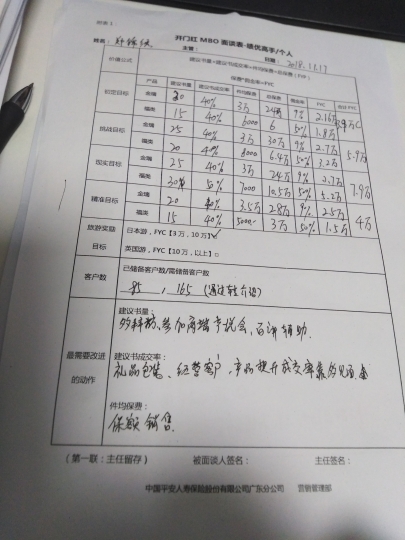 附表 1
开门红 MBO 面谈表-绩优高手/个人
姓名: 主管: 日期: 2018.11.17
价值公式 建议书量×建议书成交率×件均保费=总保费(FYP)
保费*佣金率=FYC
产品 建议书量 建议书成交率 件均保费 总保费 佣金率 FYC 合计 FYC
初定目标 金瑞 30 40% 3万 9% 2.16万
福类 15 40% 6000 6 50% 1.8万
挑战目标 金瑞 25 40% 3万 30万 9% 2.7万 5.9万
福类 20 40% 8000 6.4万 50% 3.2万
现实目标 金瑞 25 40% 3万 24万 9% 7.9万
福类 50% 7000 10.5万 50%
精准目标 金瑞 20 40% 3.5万 9% 2.5万 4万
福类 15 40% 5000 3万 50% 1.5万
旅游奖励 日本游,FYC【3 万,10 万】☑
目标 英国游,FYC【10 万,以上】□
客户数 已储备客户数/需储备客户数
85 , 165 (通过转介绍)
最需要改进的动作
建议书量:
参加高端产说会、百讲辅助.
建议书成交率:
礼品包装、经营客户,产品提升成交率
件均保费:
保额销售.
(第一联:主任留存) 被面谈人签名: 主任签名:
中国平安人寿保险股份有限公司广东分公司 营销管理部